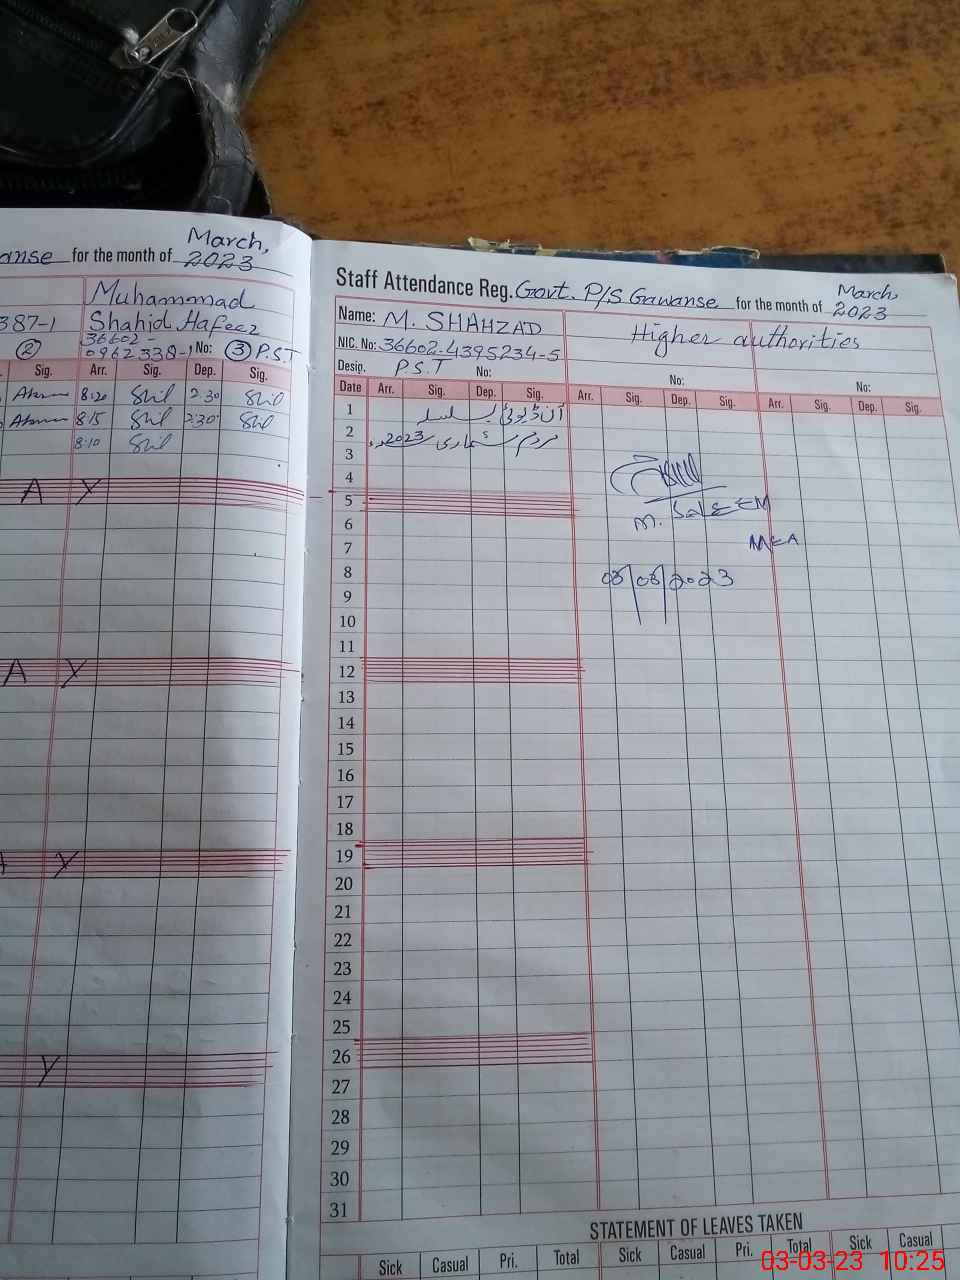 March,
anse for the month of 2023
Muhammad
387-1 Shahid Hafeez
36602-
② 0962338-1 No: ③ P.S.T
Sig. Arr. Sig. Dep. Sig.
8:20 2:30
8:15 2:30
8:10
A Y
A Y
Y
Y
Staff Attendance Reg. Govt. P/S Gawanse for the month of March, 2023
Name: M. SHAHZAD Higher authorities
NIC. No: 36602-4395234-5
Desig. P.S.T No: No: No:
Date Arr. Sig. Dep. Sig. Arr. Sig. Dep. Sig. Arr. Sig. Dep. Sig.
1 آن ڈیوٹی بسلسلہ
2 مردم شماری 2023
3
4
5
M. SaLEEM
6
7
MEA
8
03/03/2023
9
10
11
12
13
14
15
16
17
18
19
20
21
22
23
24
25
26
27
28
29
30
31
STATEMENT OF LEAVES TAKEN
Sick Casual Pri. Total Sick Casual Pri. Total Sick Casual
03-03-23 10:25